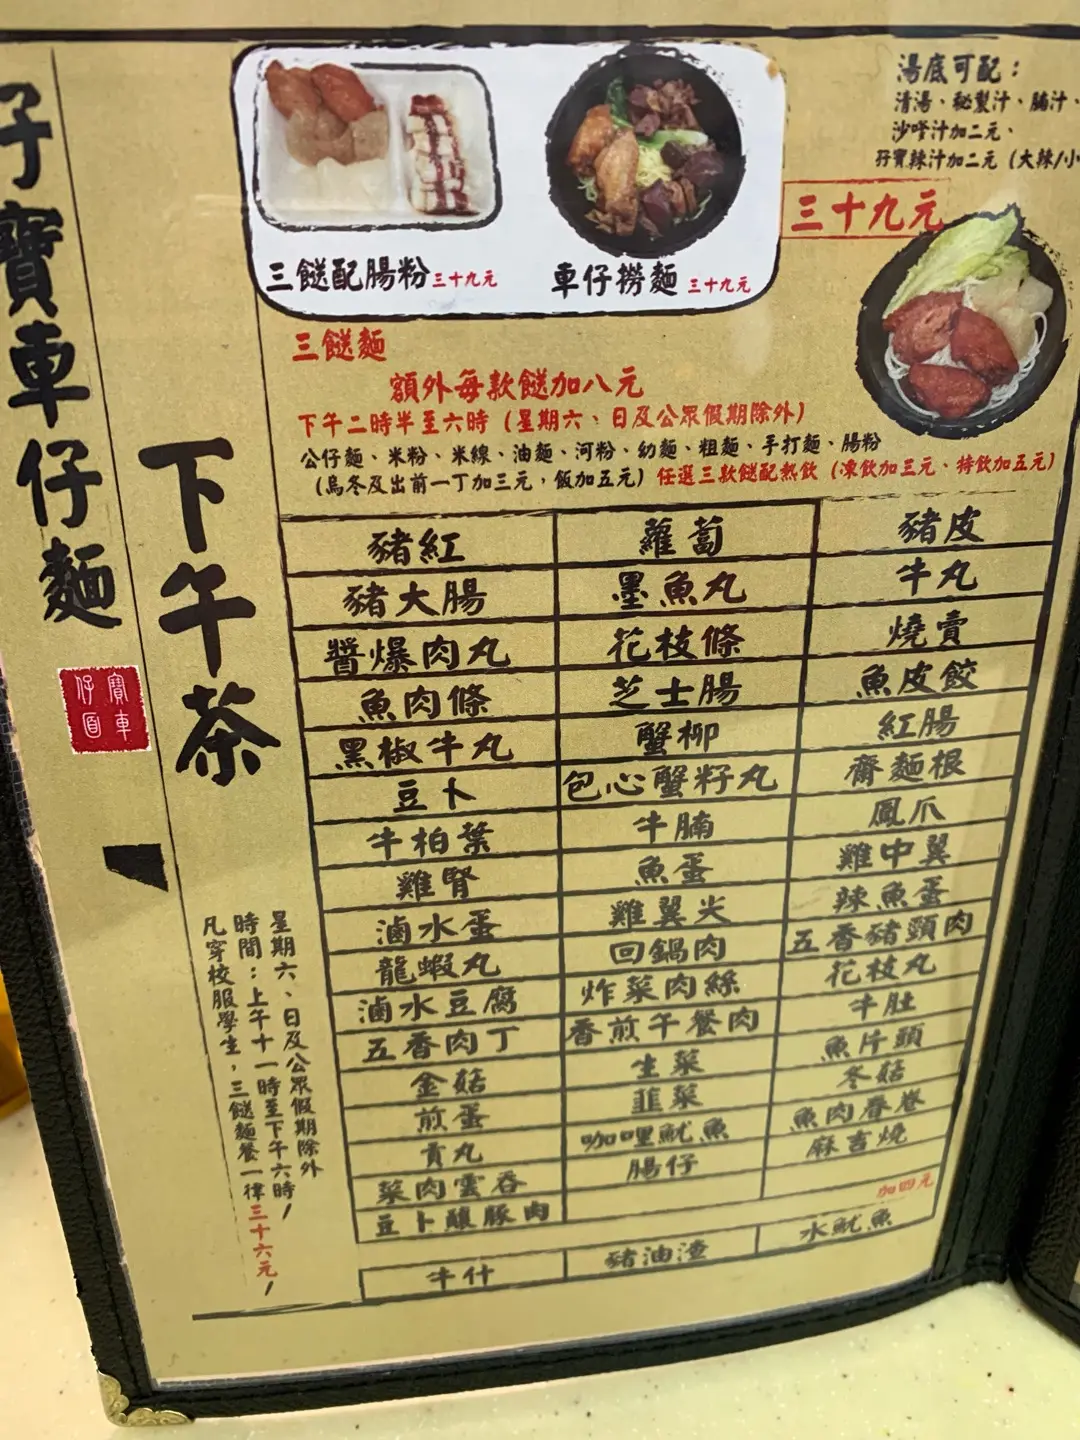 仔寶車仔麵
下午茶
寶車仔麵
三餸配腸粉 三十九元
車仔撈麵 三十九元
湯底可配：
清湯、秘製汁、腩汁、
沙嗲汁加二元、
孖寶辣汁加二元（大辣/小
三十九元
三餸麵
額外每款餸加八元
下午二時半至六時（星期六、日及公眾假期除外）
公仔麵、米粉、米線、油麵、河粉、幼麵、粗麵、手打麵、腸粉
（烏冬及出前一丁加三元，飯加五元）任選三款餸配熱飲（凍飲加三元、特飲加五元）
豬紅 蘿蔔 豬皮
豬大腸 墨魚丸 牛丸
醬爆肉丸 花枝條 燒賣
魚肉條 芝士腸 魚皮餃
黑椒牛丸 蟹柳 紅腸
豆卜 包心蟹籽丸 齋麵根
牛柏葉 牛腩 鳳爪
雞腎 魚蛋 雞中翼
滷水蛋 雞翼尖 辣魚蛋
龍蝦丸 回鍋肉 五香豬頭肉
滷水豆腐 炸菜肉絲 花枝丸
五香肉丁 香煎午餐肉 牛肚
金菇 生菜 魚片頭
煎蛋 韮菜 冬菇
貢丸 咖哩魷魚 魚肉春卷
菜肉雲吞 腸仔 麻吉燒
豆卜釀豚肉
加四元
牛什 豬油渣 水魷魚
星期六、日及公眾假期除外
時間：上午十一時至下午六時！
凡穿校服學生，三餸麵餐一律三十六元！